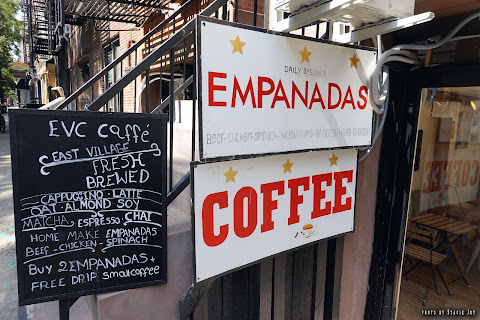 EVC Caffé
EAST VILLAGE
FRESH
BREWED
CAPPUCINO - LATTE
OAT ALMOND SOY
MATCHA, ESPRESSO CHAI
HOME MAKE EMPANADAS
BEEF - CHICKEN - SPINACH
BUY 2 EMPANADAS +
FREE DRIP SMALL COFFEE
DAILY SPECIALS
EMPANADAS
BEEF-CHICKEN-SPINACH
COFFEE
COFFEE
PHOTO BY STACIE JOY